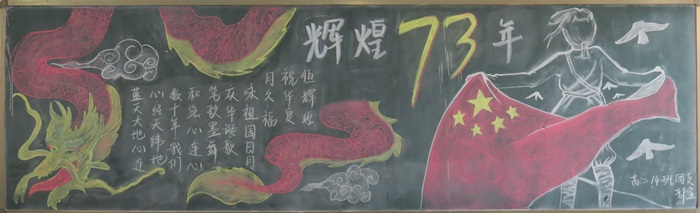 辉煌73年
伍辉珉
祝华夏
月久福
咏祖国日月
灰华诞歌
笔歌墨舞
和您心连心
数十年我们
心经天纬地
蓝天大地心连
高二14班团支